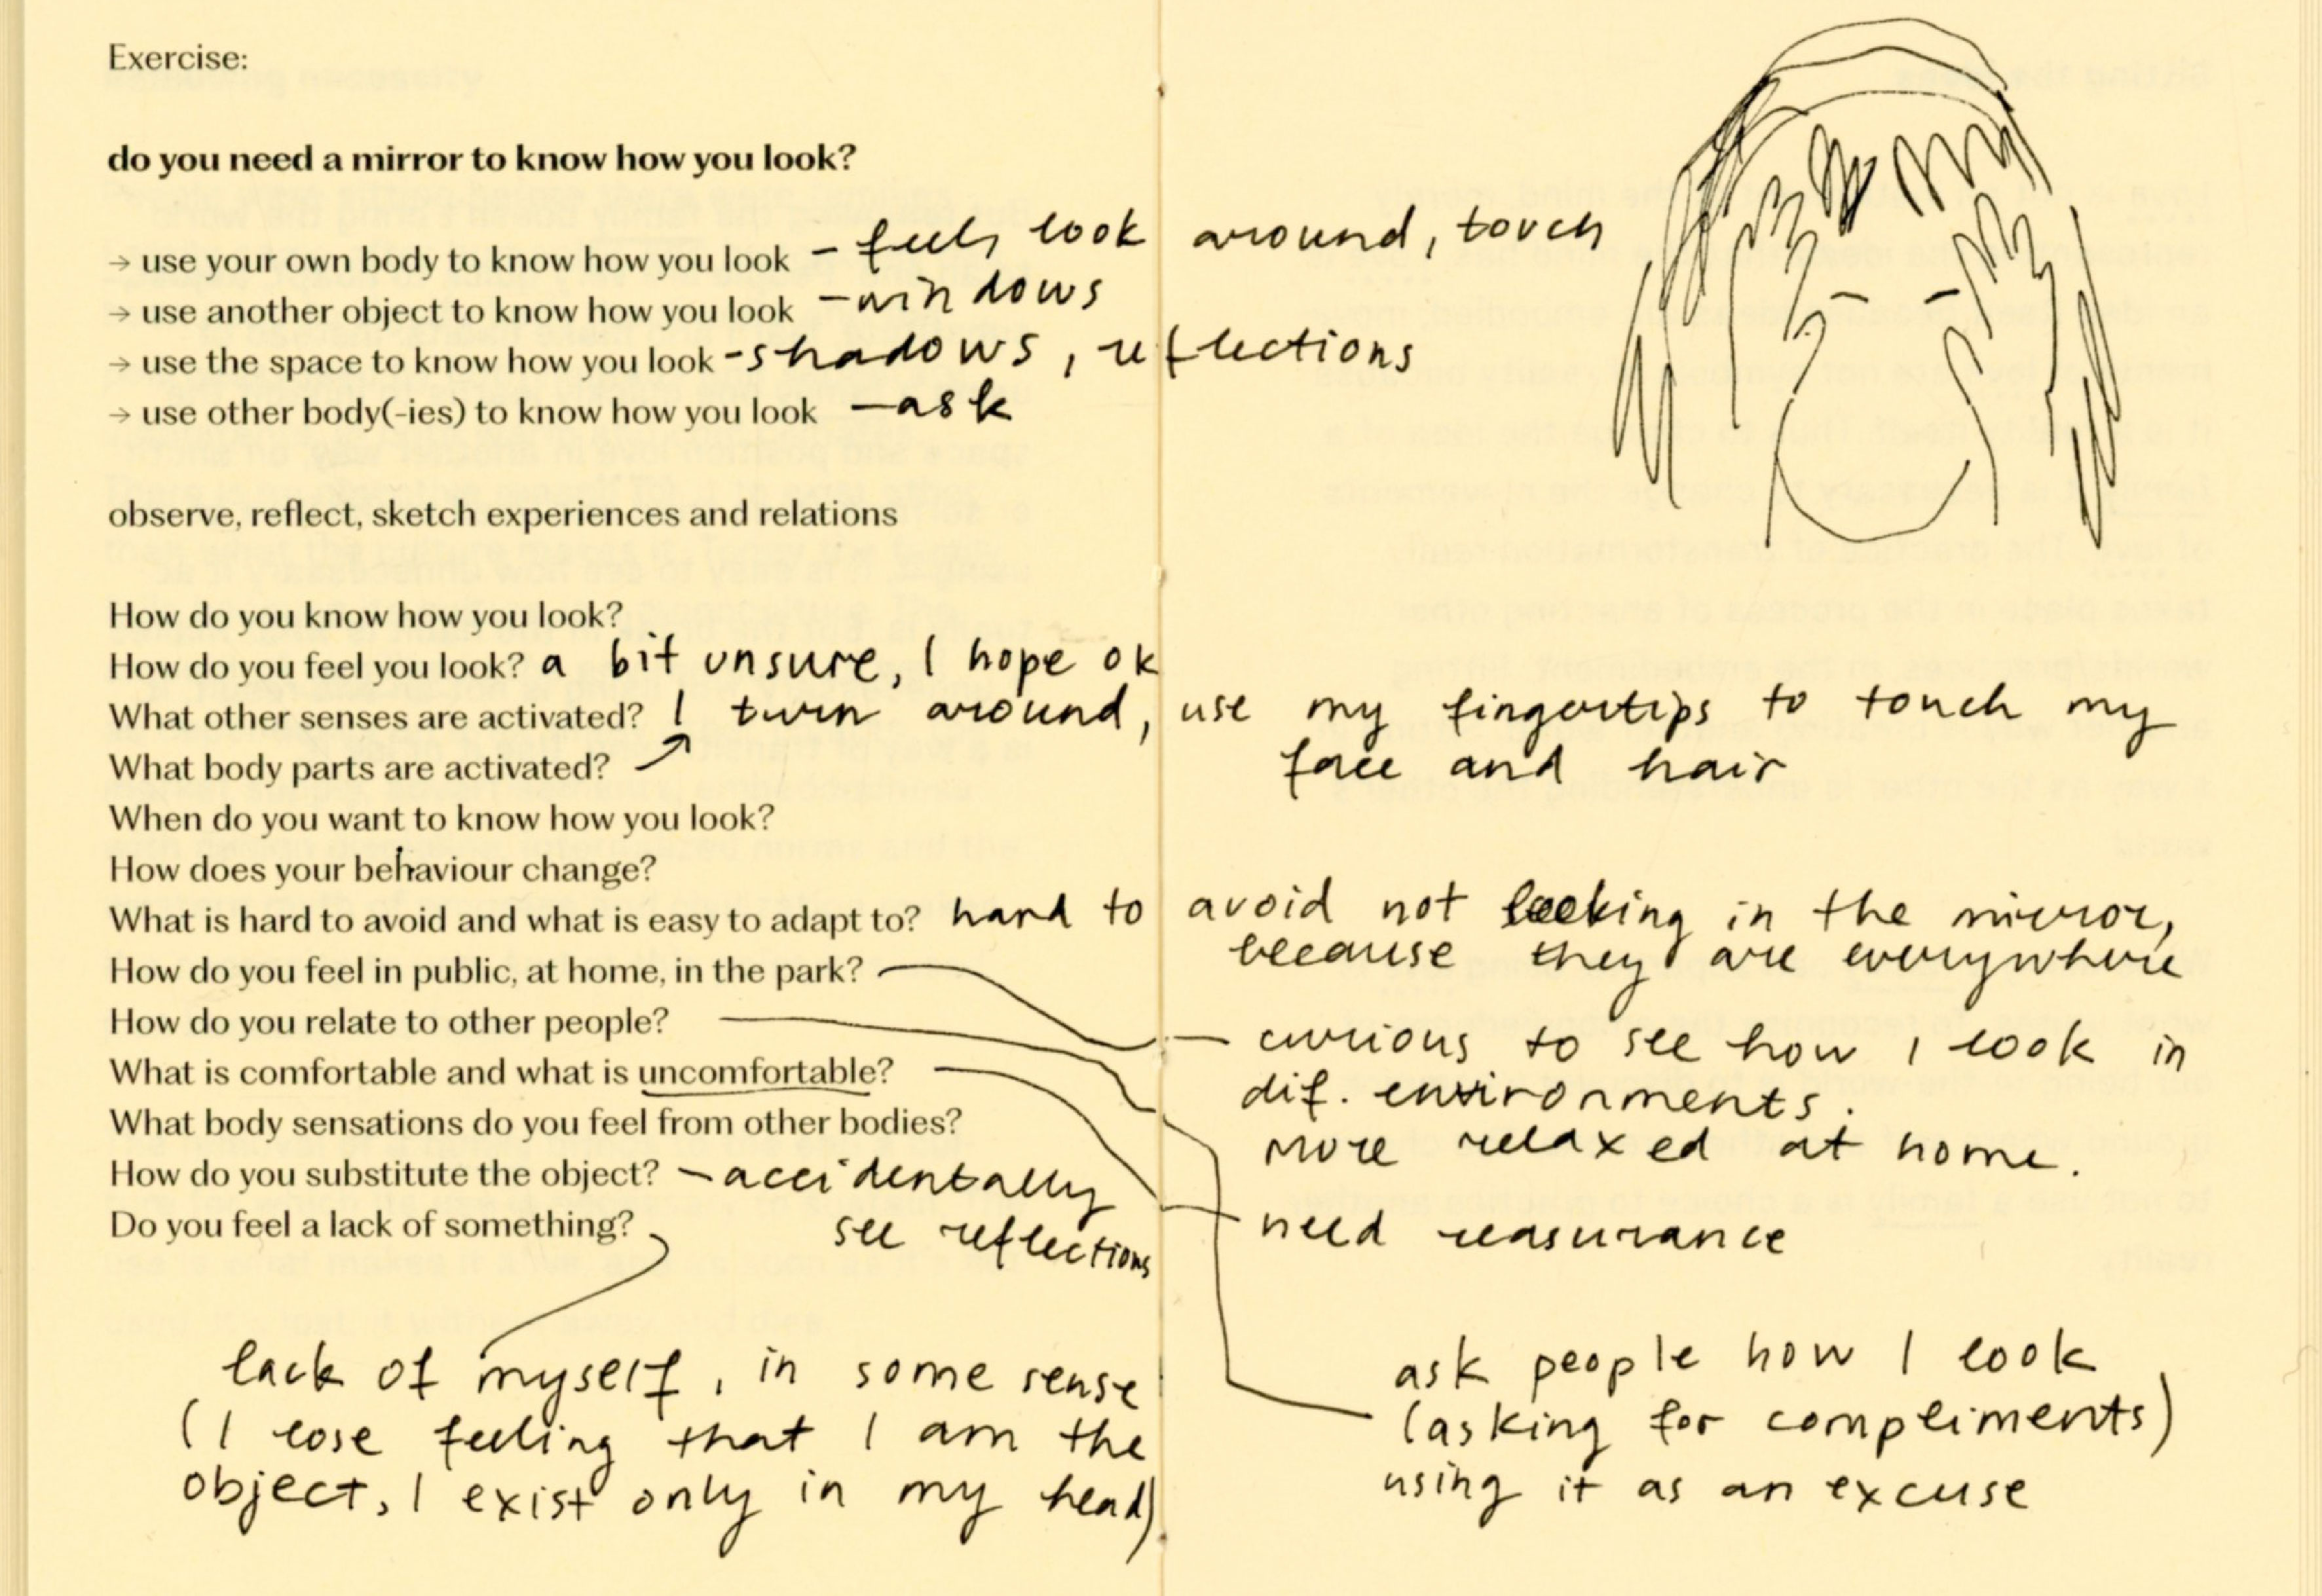 Exercise:
do you need a mirror to know how you look?
→ use your own body to know how you look - feel, look around, touch
→ use another object to know how you look - windows
→ use the space to know how you look - shadows, reflections
→ use other body(-ies) to know how you look - ask
observe, reflect, sketch experiences and relations
How do you know how you look?
How do you feel you look? a bit unsure, I hope ok
What other senses are activated? I turn around, use my fingertips to touch my
What body parts are activated? face and hair
When do you want to know how you look?
How does your behaviour change?
What is hard to avoid and what is easy to adapt to? hard to avoid not looking in the mirror,
because they are everywhere
How do you feel in public, at home, in the park?
How do you relate to other people?
- curious to see how I look in
What is comfortable and what is uncomfortable?
dif. environments.
What body sensations do you feel from other bodies?
more relaxed at home.
How do you substitute the object? - accidentally
see reflections
Do you feel a lack of something?
need reasurance
lack of myself, in some sense
(I lose feeling that I am the
object, I exist only in my head)
ask people how I look
(asking for compliments)
using it as an excuse